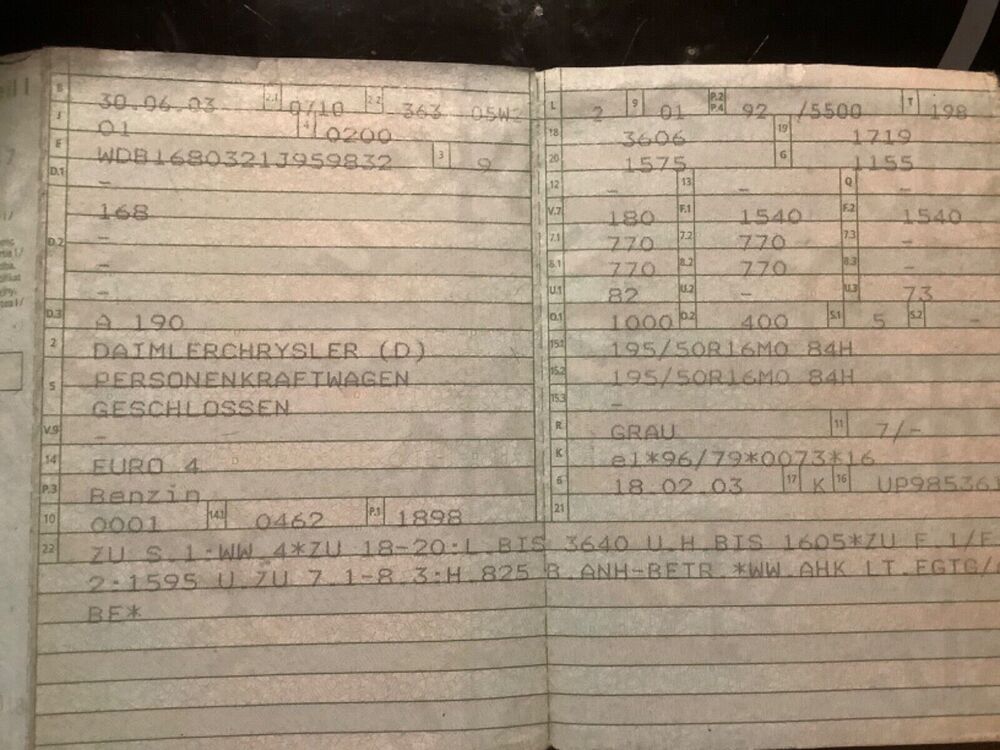 B 30.06.03 2.1 0710 2.2 363 05W2
J 01 4 0200
E WDB1680321J959832 3 9
D.1 -
168
D.2 -
-
-
D.3 A 190
2 DAIMLERCHRYSLER (D)
5 PERSONENKRAFTWAGEN
GESCHLOSSEN
V.9 -
14 EURO 4
P.3 Benzin
10 0001 14.1 0462 P.1 1898
L 2 9 01 P.2 P.4 92 /5500 T 198
18 3606 19 1719
20 1575 G 1155
12 - 13 - Q -
V.7 180 F.1 1540 F.2 1540
7.1 770 7.2 770 7.3 -
8.1 770 8.2 770 8.3 -
U.1 82 U.2 - U.3 73
O.1 1000 O.2 400 S.1 5 S.2 -
15.1 195/50R16MO 84H
15.2 195/50R16MO 84H
15.3 -
R GRAU 11 7/-
K e1*96/79*0073*16
6 18.02.03 17 K 16 UP985363
21
22 ZU S.1:WW 4*ZU 18-20:L.BIS 3640 U.H.BIS 1605*ZU F.1/F.
2:1595 U.ZU 7.1-8.3:H.825 B.ANH-BETR.*WW.AHK LT.EGTG/
BE*